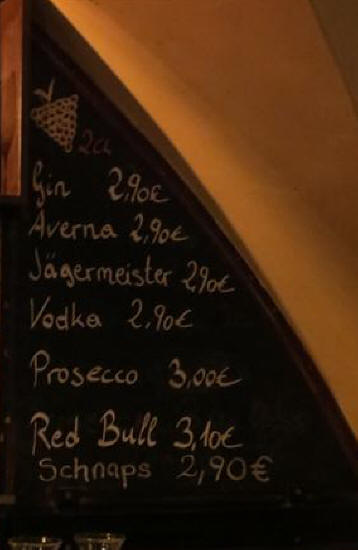 2cl
Gin 2,90€
Averna 2,90€
Jägermeister 2,90€
Vodka 2,90€
Prosecco 3,00€
Red Bull 3,10€
Schnaps 2,90€